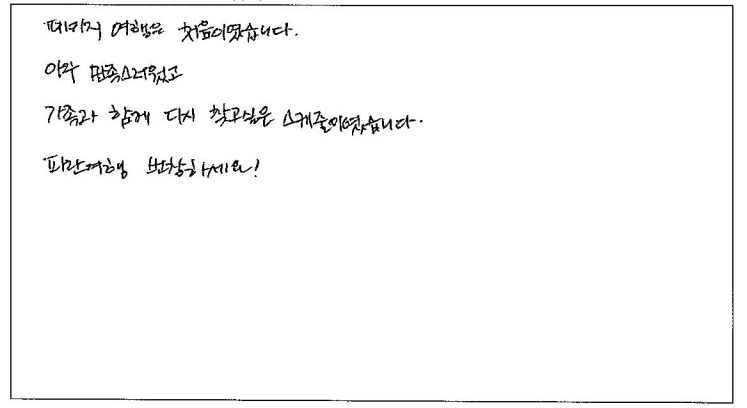 패키지 여행은 처음이였습니다.
아주 만족스러웠고
가족과 함께 다시 찾고싶은 스케줄이였습니다.
파란여행 번창하세요!